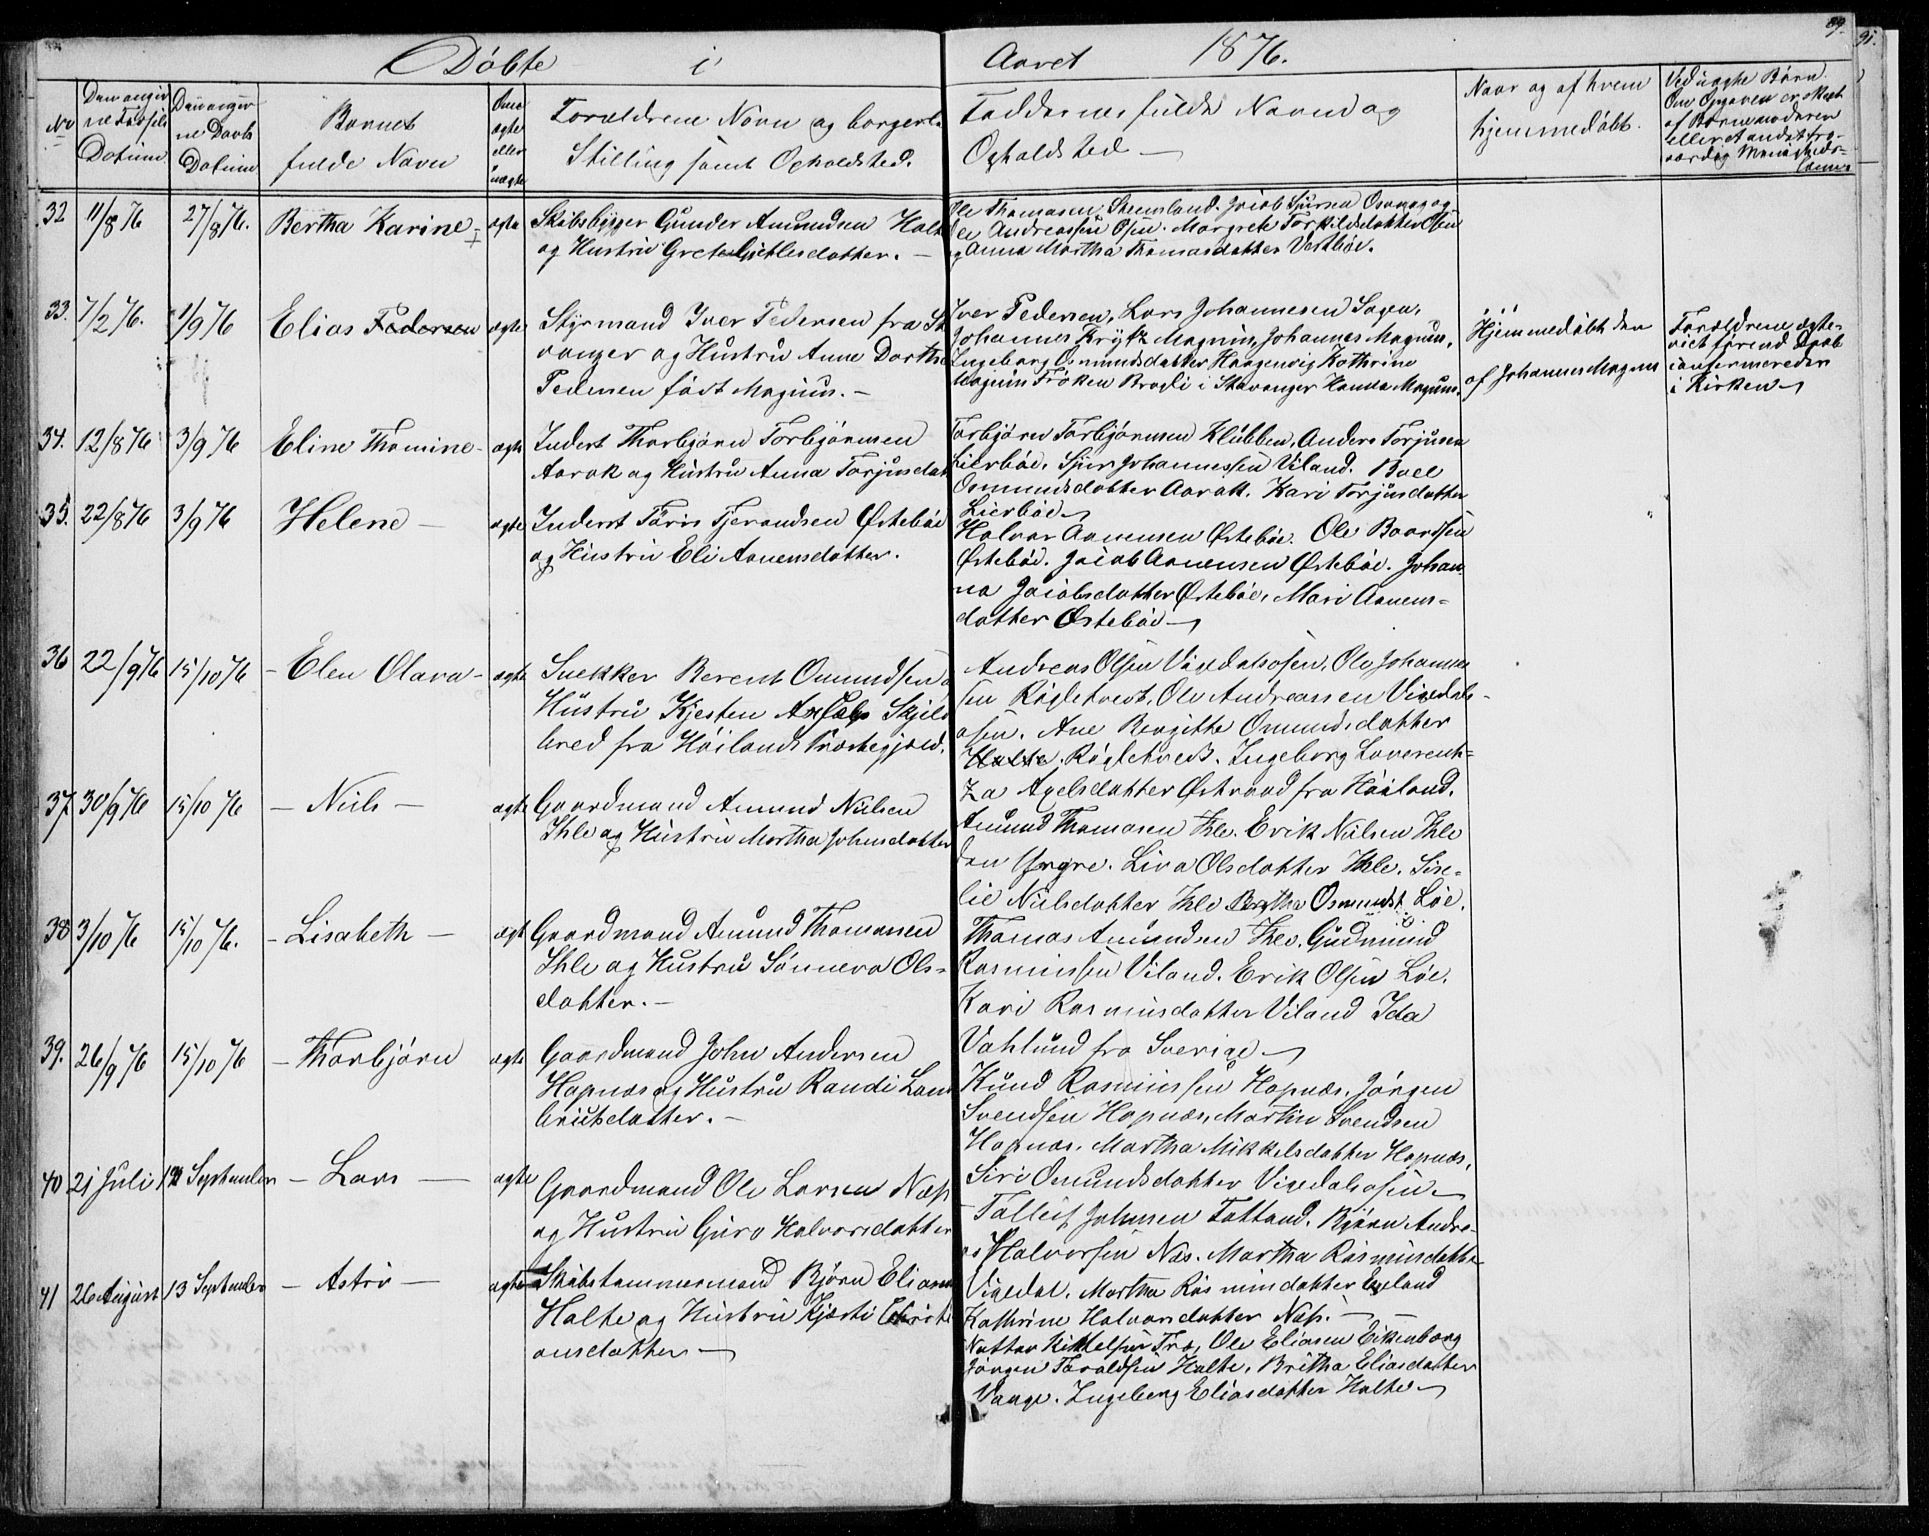 Døbte i Aaret 1876.
89.
91.
No
Den angivne Fødsels Datum
Den angivne Daabs Datum
Barnets fulde Navn
Om ægte eller uægte
Forældrene Navn og borgerl. Stilling samt Opholdsted.
Faddernes fulde Navne og Opholdsted
Naar og af hvem hjemmedøbt.
Ved uægte Børn. Om Opgaven er skeet af Barnemoderen eller et andet troværdig
32 11/8 76 27/8 76. Bertha Karine ægte
Skibsbygger Gunder Amundsen Halte
og Hustru Grete Kittlesdatter.
Ole Thomasen Stumland. Jacob Sjursen
Andreassen Øsen. Margrete Torkildsdatter Øsen
og Anna Martha Thomasdatter Vestbøe.
33. 7/2 76. 1/9 76 Elias Pedersen ægte
Styrmand Iver Pedersen fra St
vanger og Hustru Anne Dorthe
Pedersen født Magnus.
Iver Pedersen, Lars Johannesen Sagen,
Johannes Magnus, Johannes Magnus,
Ingeborg Osmundsdatter Haugenvig Kathrine
Magnus Frøken Brøgli i Stavanger Hanna Magnus.
Hjemmedøbt den
af Johannes Magnus
Forældrene ægte-
viet førend Daab
confermereden
i Kirken
34. 12/8 76 3/9 76 Eline Thomine ægte
Inderst Thorbjørn Torbjørnsen
Aarak og Hustru Anna Torjusdat
Torbjørn Torbjørnsen Klubben, Anders Torjusen
Lierbøe. Sjur Johannessen Viland. Boel
Osmundsdatter Aarak. Kari Torjusdatter
Lierbøe
35. 22/8 76 3/9 76 Helene ægte
Inderst Tørris Tjerandsen Østebøe
og Hustru Eli Aanensdatter.
Halvor Aanensen Østebøe. Ole Baardsen
Østebøe. Jacob Aanensen Østebøe. Johan
na Jacobsdatter Østebøe, Mari Aanens-
datter Østebøe
36 22/9 76 15/10 76 Elen Olava ægte
Snekker Berent Omundsen
Hustru Kjesten Axsels Skjeld
bred fra Høilands Præstegjæld.
Andreas Olsen Vigedalsosen. Ole Johannes
sen Røgletvedt, Ole Andreassen Vigedals-
osen. Ane Bergitte Omundsdatter
Halte Røgletvedt. Ingeborg Laverent-
za Axelsdatter Østraad fra Høiland.
37 30/9 76 15/10 76 Niels ægte
Gaardmand Amund Nielsen
Ihle og Hustru Martha Johnsdatter
Amund Thomasen Ihle. Erik Nielsen Ihle
den Yngre. Liva Olsdatter Ihle. Sise-
lie Nielsdatter Ihle Bertha Osmundst Løe.
38 3/10 76 15/10 76. Lisabeth ægt
Gaardmand Amund Thomassen
Ihle og Hustru Sønneva Ols-
datter.
Thomas Amundsen Ihle. Gudmund
Rasmussen Viland. Erik Olsen Løe.
Kari Rasmusdatter Viland Ida
Vahlund fra Sverige
39. 26/9 76 15/10 76 Thorbjørn ægte
Gaardmand John Andersen
Hapnæs og Hustru Randi Lau
britsdatter.
Knud Rasmussen Hapnæs, Jørgen
Svendsen Hapnæs, Martin Svendsen
Hapnæs. Martha Mikkelsdatter Hapnæs,
Siri Omundsdatter Vigedalsosen
40 21 Juli 12 September Lars ægte
Gaardmand Ole Larsen Næss
og Hustru Guro Halvorsdatter
Tolleif Johnsen Fatland. Bjørn Andre
as Halvorsen Næs. Martha Rasmusdatter
Vigedal. Martha Rasmusdatter Eseland
Kathrine Halvorsdatter Næss.
41 26 August 13 September Astri ægte
Skibstømmermand Bjørn Eliasen
Halte og Hustru Kjersti Christi
ansdatter
Nottov Kittelsen Tro, Ole Eliasen Eikenborg
Jørgen Toraldsen Halte, Britha Eliasdatter
Vaage. Ingeborg Eliasdatter Halte